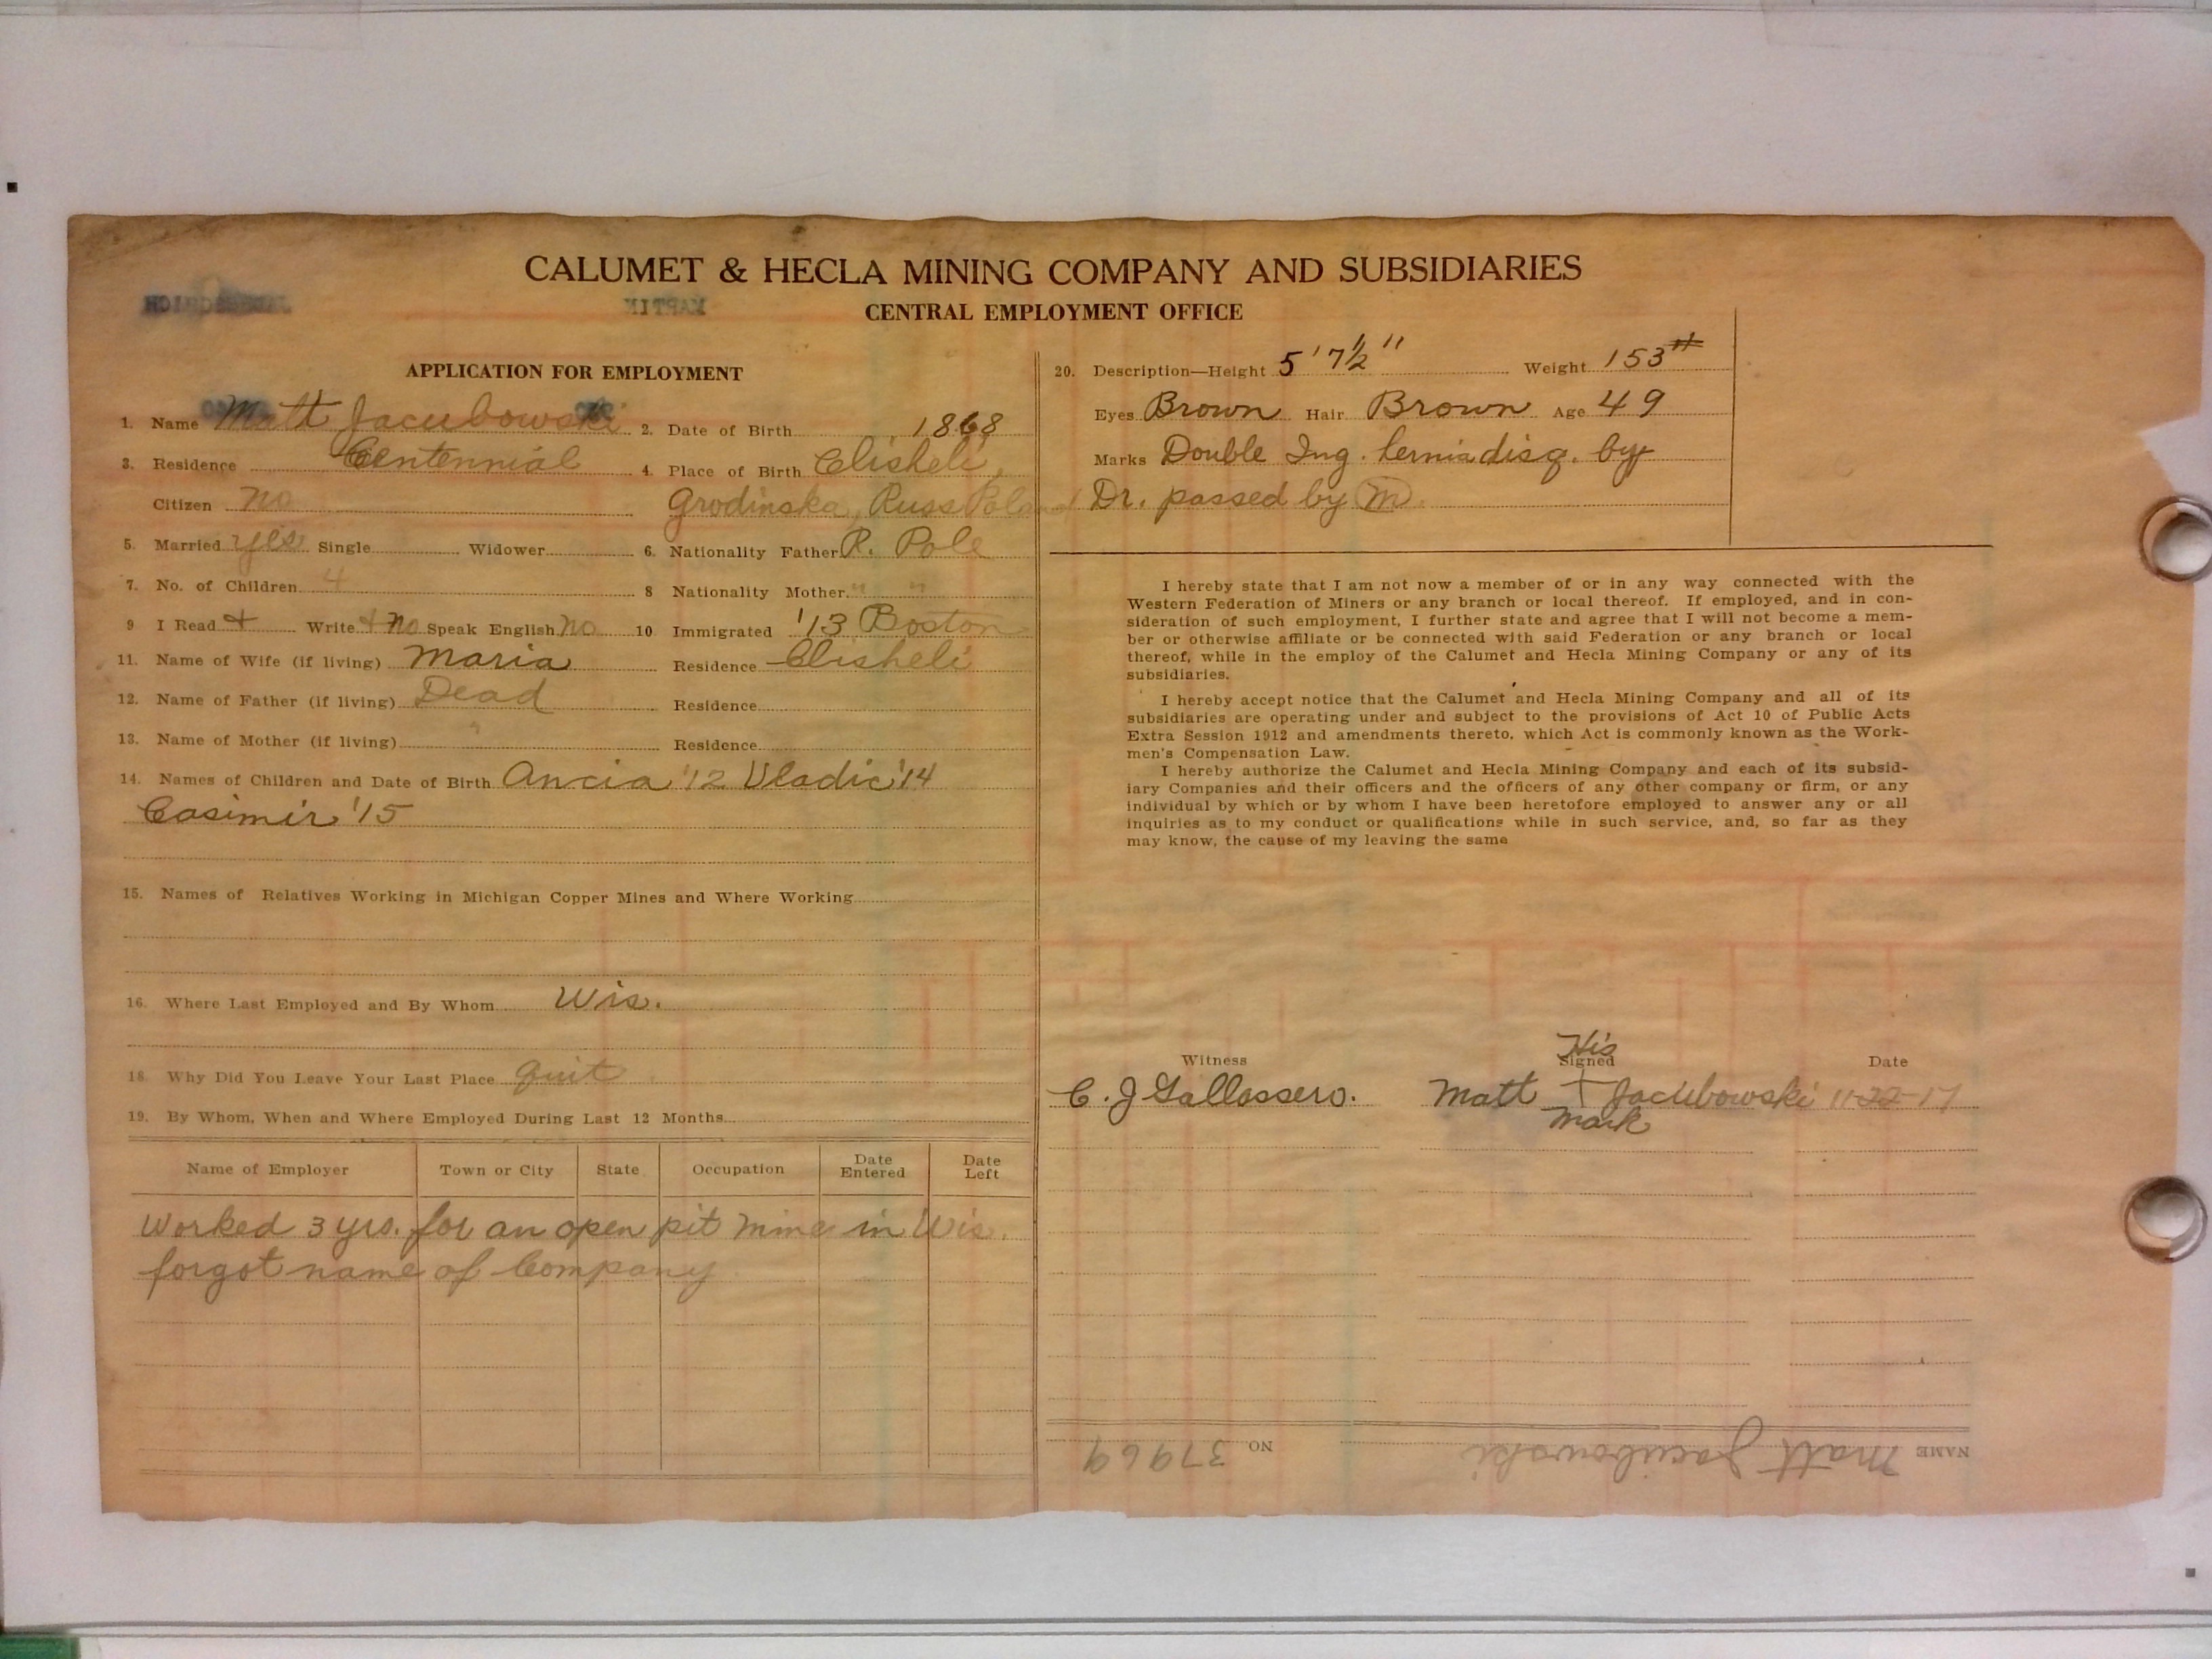 CALUMET & HECLA MINING COMPANY AND SUBSIDIARIES
MARTIN
CENTRAL EMPLOYMENT OFFICE
APPLICATION FOR EMPLOYMENT
1. Name Matt Jacubowski 2. Date of Birth 1868
3. Residence Centennial 4. Place of Birth Clisheli,
Citizen no Grodinska, Russ Poland
5. Married yes Single Widower 6. Nationality Father R. Pole
7. No. of Children 4 8 Nationality Mother " "
9 I Read + Write + no Speak English no 10 Immigrated '13 Boston
11. Name of Wife (if living) Maria Residence Clisheli
12. Name of Father (if living) Dead Residence
13. Name of Mother (if living) " Residence
14. Names of Children and Date of Birth Ancia '12 Vladic '14
Casimir '15
15. Names of Relatives Working in Michigan Copper Mines and Where Working
16. Where Last Employed and By Whom Wis.
18. Why Did You Leave Your Last Place quit
19. By Whom, When and Where Employed During Last 12 Months
Name of Employer Town or City State Occupation Date Entered Date Left
Worked 3 yrs. for an open pit mine in Wis.
forgot name of Company
20. Description—Height 5' 7½" Weight 153#
Eyes Brown Hair Brown Age 49
Marks Double Ing. hernia disq. by
Dr. passed by M.
I hereby state that I am not now a member of or in any way connected with the
Western Federation of Miners or any branch or local thereof. If employed, and in con-
sideration of such employment, I further state and agree that I will not become a mem-
ber or otherwise affiliate or be connected with said Federation or any branch or local
thereof, while in the employ of the Calumet and Hecla Mining Company or any of its
subsidiaries.
I hereby accept notice that the Calumet and Hecla Mining Company and all of its
subsidiaries are operating under and subject to the provisions of Act 10 of Public Acts
Extra Session 1912 and amendments thereto, which Act is commonly known as the Work-
men's Compensation Law.
I hereby authorize the Calumet and Hecla Mining Company and each of its subsid-
iary Companies and their officers and the officers of any other company or firm, or any
individual by which or by whom I have been heretofore employed to answer any or all
inquiries as to my conduct or qualifications while in such service, and, so far as they
may know, the cause of my leaving the same
His
Witness Signed Date
C. J Gallossero. Matt + Jacubowski 11-22-17
mark
NAME Matt Jacubowski NO 37969